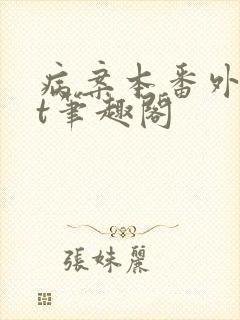 病案本番外
t笔趣阁
張妹麗